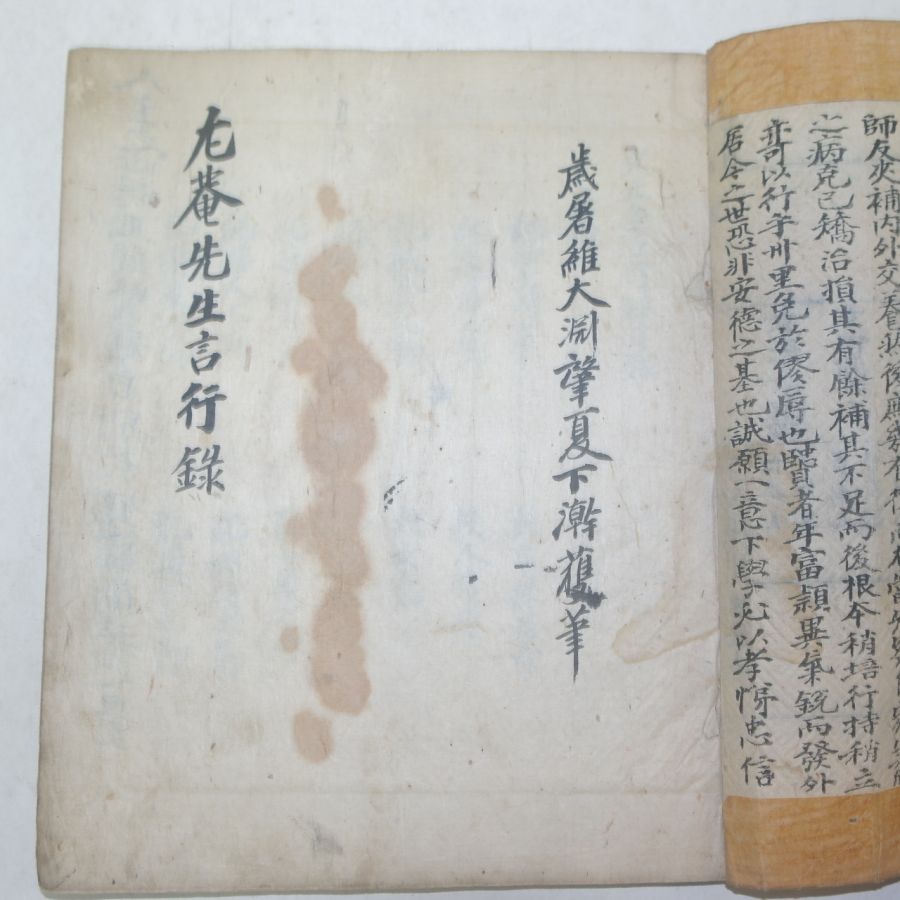 師友夾補內外交養
之病克己矯治損其有餘補其不足而後根本稍培行持稍立
亦可以行乎州里免於僇辱也賢者年富穎異氣銳而發外
居今之世恐非安德之基也誠願一意下學必以孝悌忠信
歲屠維大淵肇夏下澣
尤菴先生言行錄